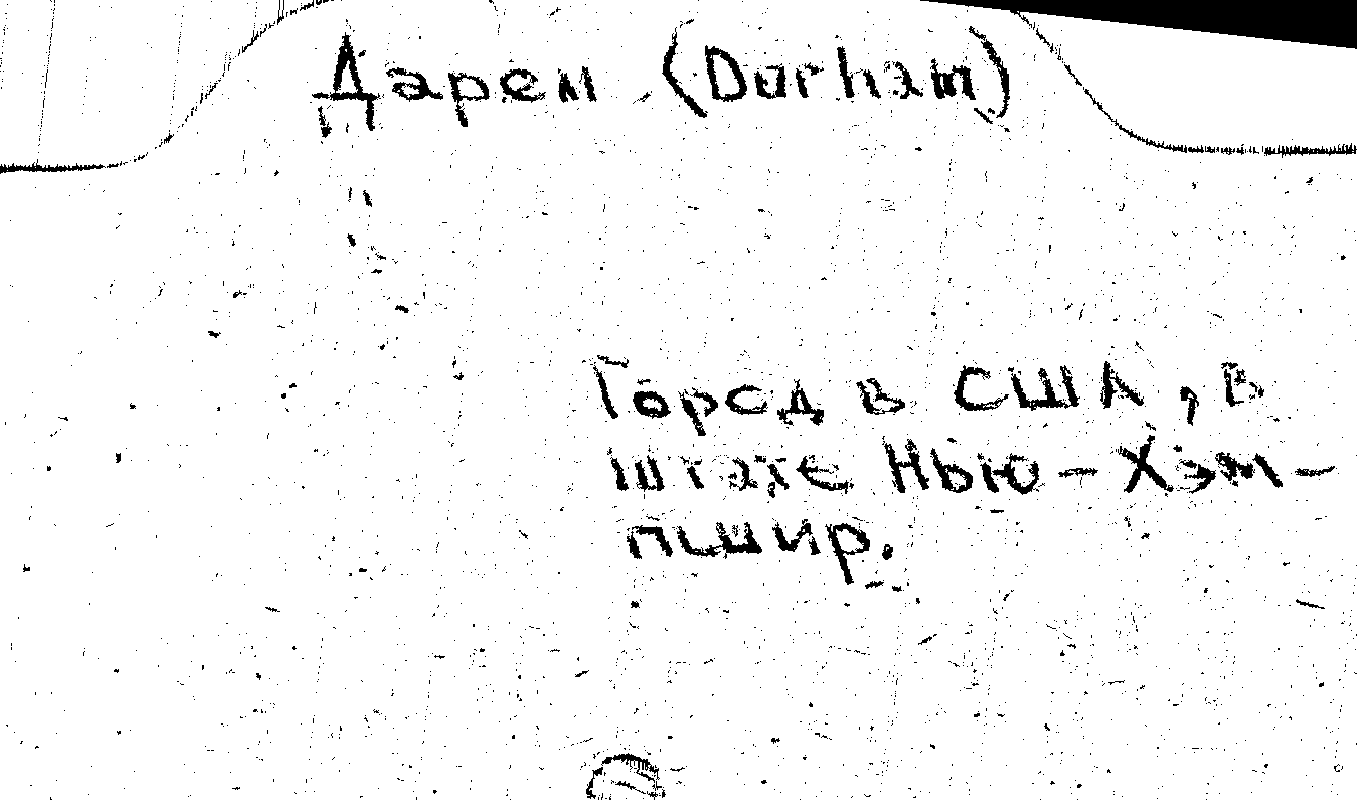 Дарем (Durham)
Город в США, в
штате Нью-Хэм-
пшир.